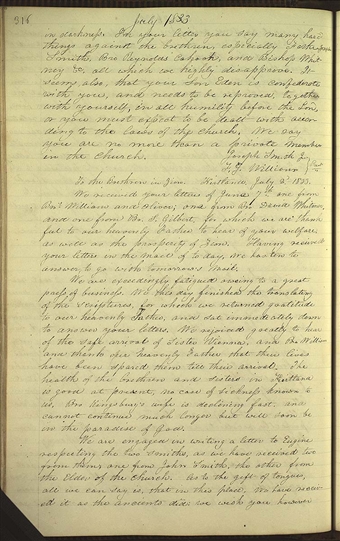 316
July 1833
in darkness. In your letter you say many hard
things against the brethren, especially Father
Smith, Bro Reynolds Cahoon, and Bishop Whit-
ney &c, all which we highly disapprove. It
seems also, that your Son Eden is confederate
with you, and needs to be reproved, together
with yourself, in all humility before the Lord,
or you must expect to be dealt with accor-
ding to the laws of the Church. We say
you are no more than a private member
in the Church.
Joseph Smith Jr
F. G. Williams
To the Brethren in Zion. Kirtland, July 2d 1833.
We received your letters of June 7th one from
Wm and Oliver; one from Bro David Whitmer,
and one from Bro S. Gilbert, for which we are thank
ful to our heavenly Father to hear of your welfare
as well as the prosperity of Zion. Having received
your letters in the mail of to day, we hasten to
answer, to go with tomorrow's mail.
We are exceedingly fatigued owing to a great
press of business. We this day finished the translating
of the Scriptures, for which we returned gratitude
to our heavenly Father, and sat immediately down
to answer your letters. We rejoiced greatly to hear
of the safe arrival of Sister Vienna, and Bro William
and thank our heavenly Father that their lives
have been spared them till their arrival. The
health of the brethren and sisters in Kirtland
is good at present; no case of sickness known to
us. Bro Kingsbury's wife is declining fast, and
cannot continue much longer but will soon be
in the paradise of God.
We are engaged in writing a letter to Eugene
respecting the two Smiths, as we have received two
from them; one from John Smith, the other from
the Elder of the Church. As to the gift of tongues,
all we can say is, that in this place, we have receiv
ed it as the ancients did: we wish you however